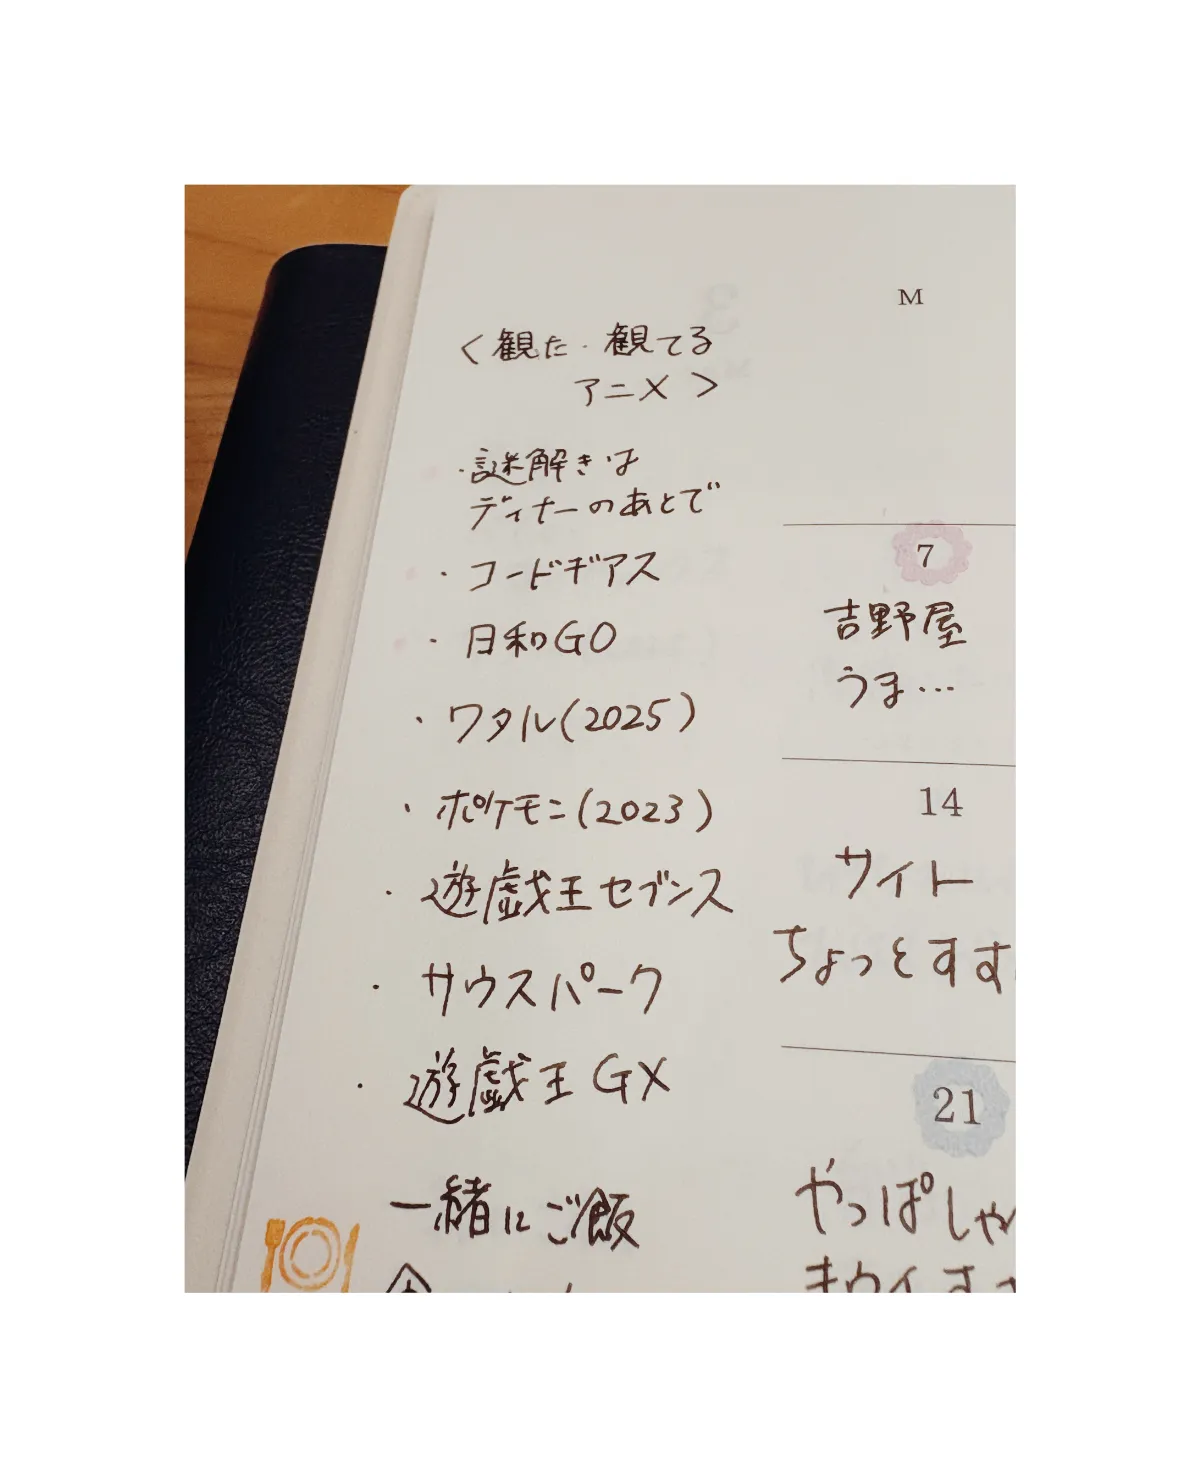 <観た・観てる
アニメ>
・謎解きは
ディナーのあとで
・コードギアス
・日和GO
・ワタル(2025)
・ポケモン(2023)
・遊戯王セブンス
・サウスパーク
・遊戯王GX
一緒にご飯
M
7
吉野屋
うま…
14
サイト
ちょっとすす
21
やっぱしゃ
キウイ